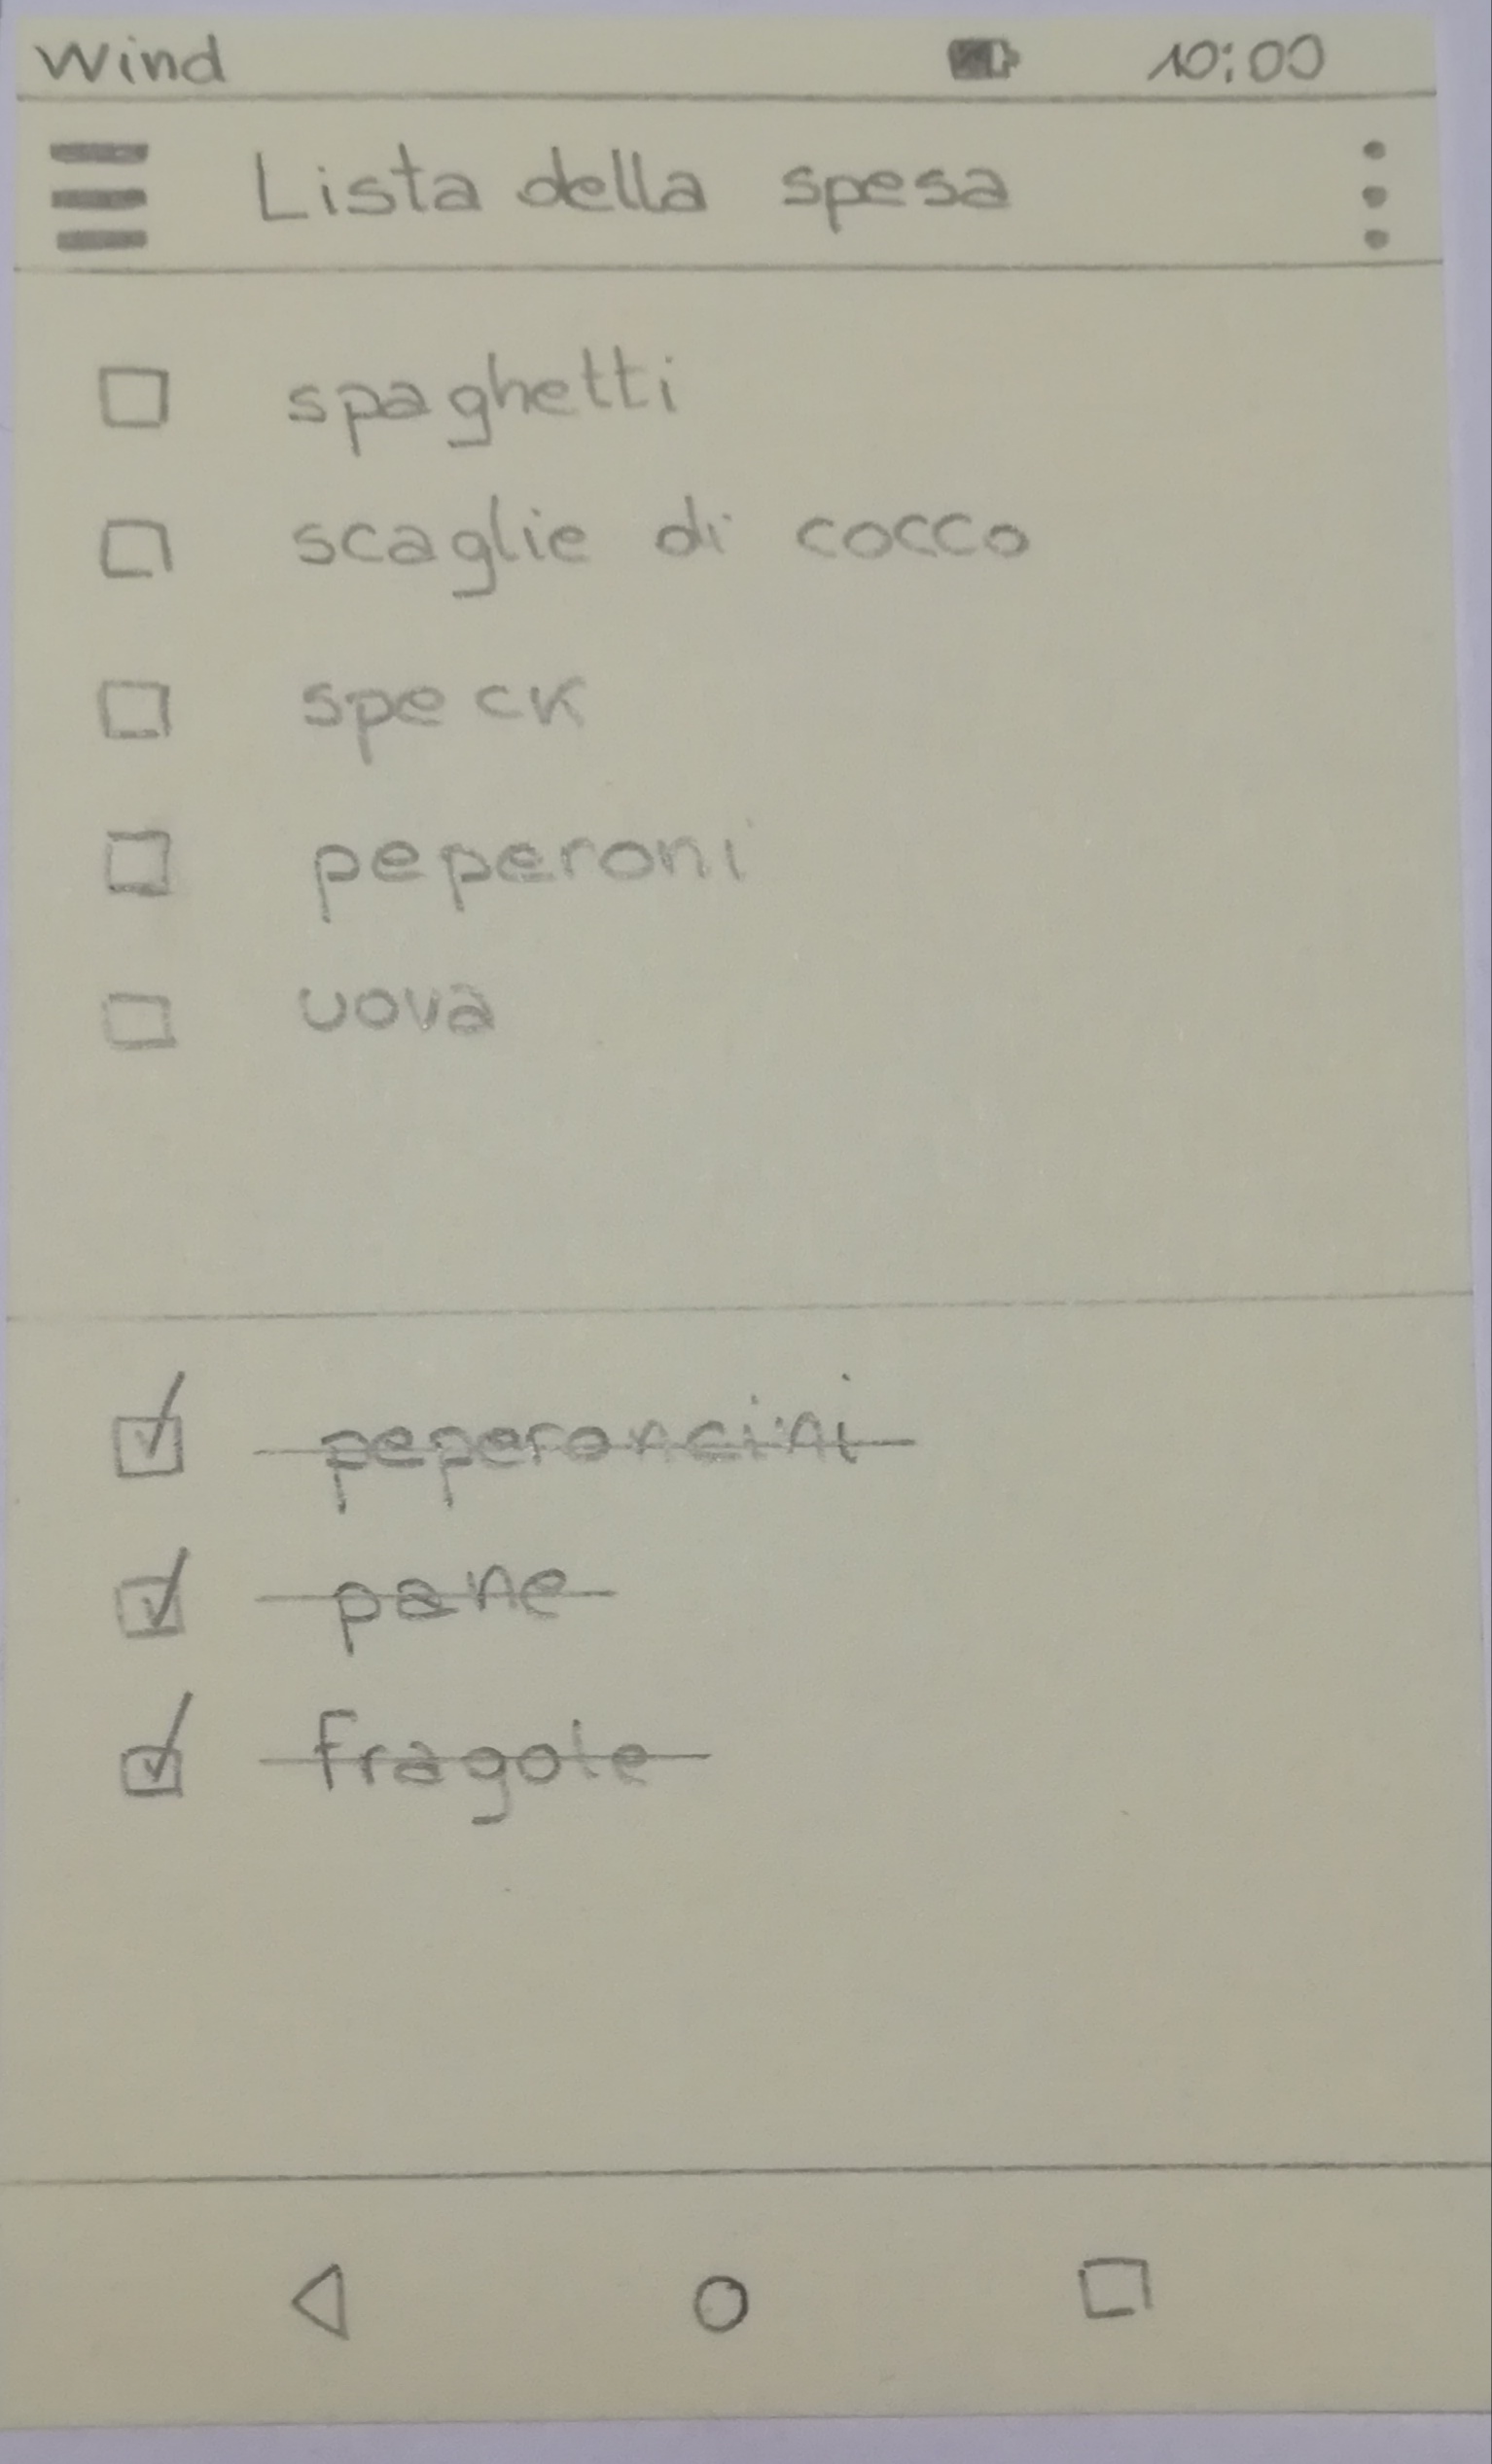 Wind 10:00
Lista della spesa
spaghetti
scaglie di cocco
speck
peperoni
uova
peperoncini
pane
fragole